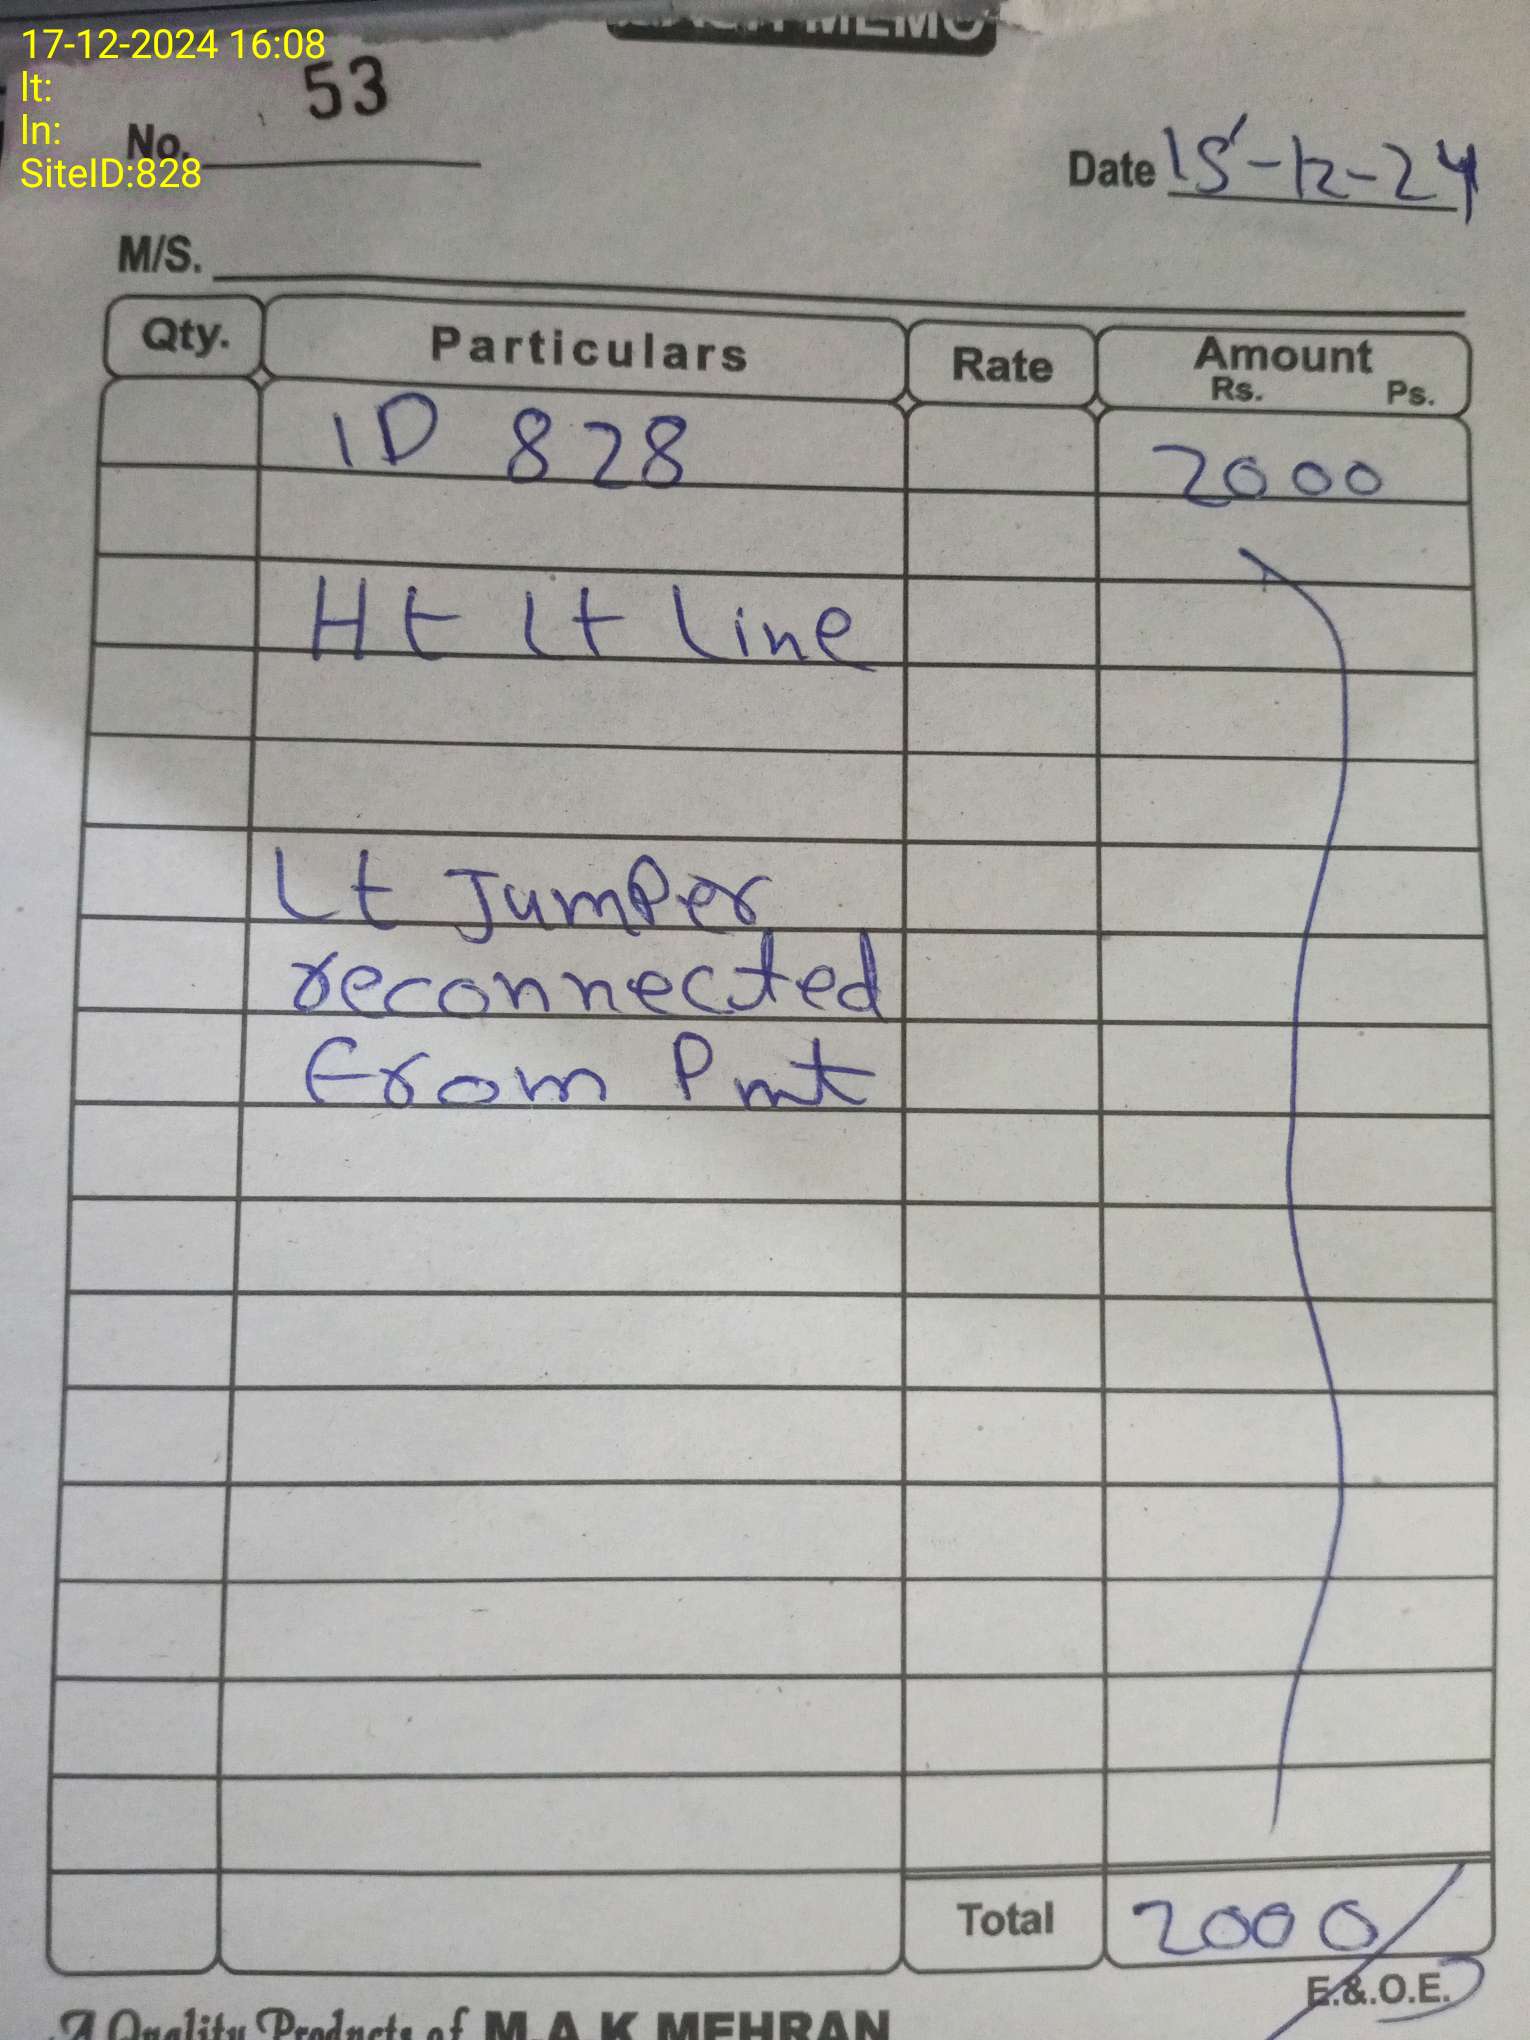 17-12-2024 16:08
lt:
ln:
SiteID:828
CASH MEMO
No. 53
Date 15-12-24
M/S.
Qty. Particulars Rate Amount
Rs. Ps.
ID 828 2000
Ht lt Line
Lt Jumper
reconnected
from Pmt
Total 2000/
E.&.O.E.
A Quality Products of M.A.K MEHRAN